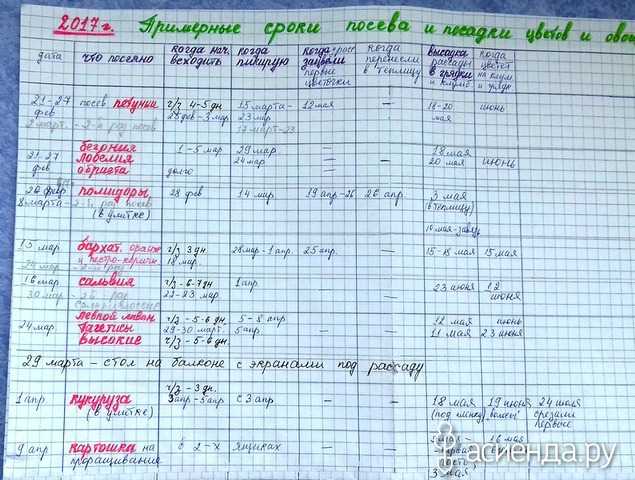 2017 г. Примерные сроки посева и посадки цветов и овощ
дата что посеяно когда нач. всходить когда пикирую когда расс зацвели первые цветочки когда перенесли в теплицу высадка рассады в грядки и клумб когда цветет на клум. и грядк
21-27 фев посев петунии ч/з 4-5 дн. 28 фев-3 мар 15 марта-23 мар 12 мая — 18-20 мая июнь
2 март. - 2-й раз посев 17 март-23
бегония 1-5 мар 29 мар. — — 18 мая
21-27 фев лобелия 24 мар — 20 мая июнь
обриета долго — —
20 февр помидоры 28 фев 14 мар 19 апр-26 26 апр. 3 мая (в теплицу)
8 марта - 2-й раз посев
(в улитке) 10 мая-завяз
15 мар бархат. оранж ч/з 3 дн. 28 мар-1 апр. 25 апр — 15-18 мая 15 мая
и пестро-коричн 18 мар.
16 мар сальвия ч/з-6-7дн 1 апр — — 23 июня 12 июня
30 мар - 2й раз 22-23 мар
левкой лаван ч/з-5-6 дн 5-8 апр — — 12 мая июнь
24 мар тагетисы 29-30 март. 5 апр — — 11 мая 23 июня
высокие ч/з-5-6 дн.
29 марта - стол на балконе с экранами под рассаду
1 апр кукуруза ч/з - 3 дн. 3 апр-5 апр с 3 апр — — 18 мая 19 июня 24 июля
(в улитке) (под пленку) "волосы" срезали первые
9 апр картошка на в 2-х ящиках — — 16 мая
проращивание 3 мая
асиенда.ру